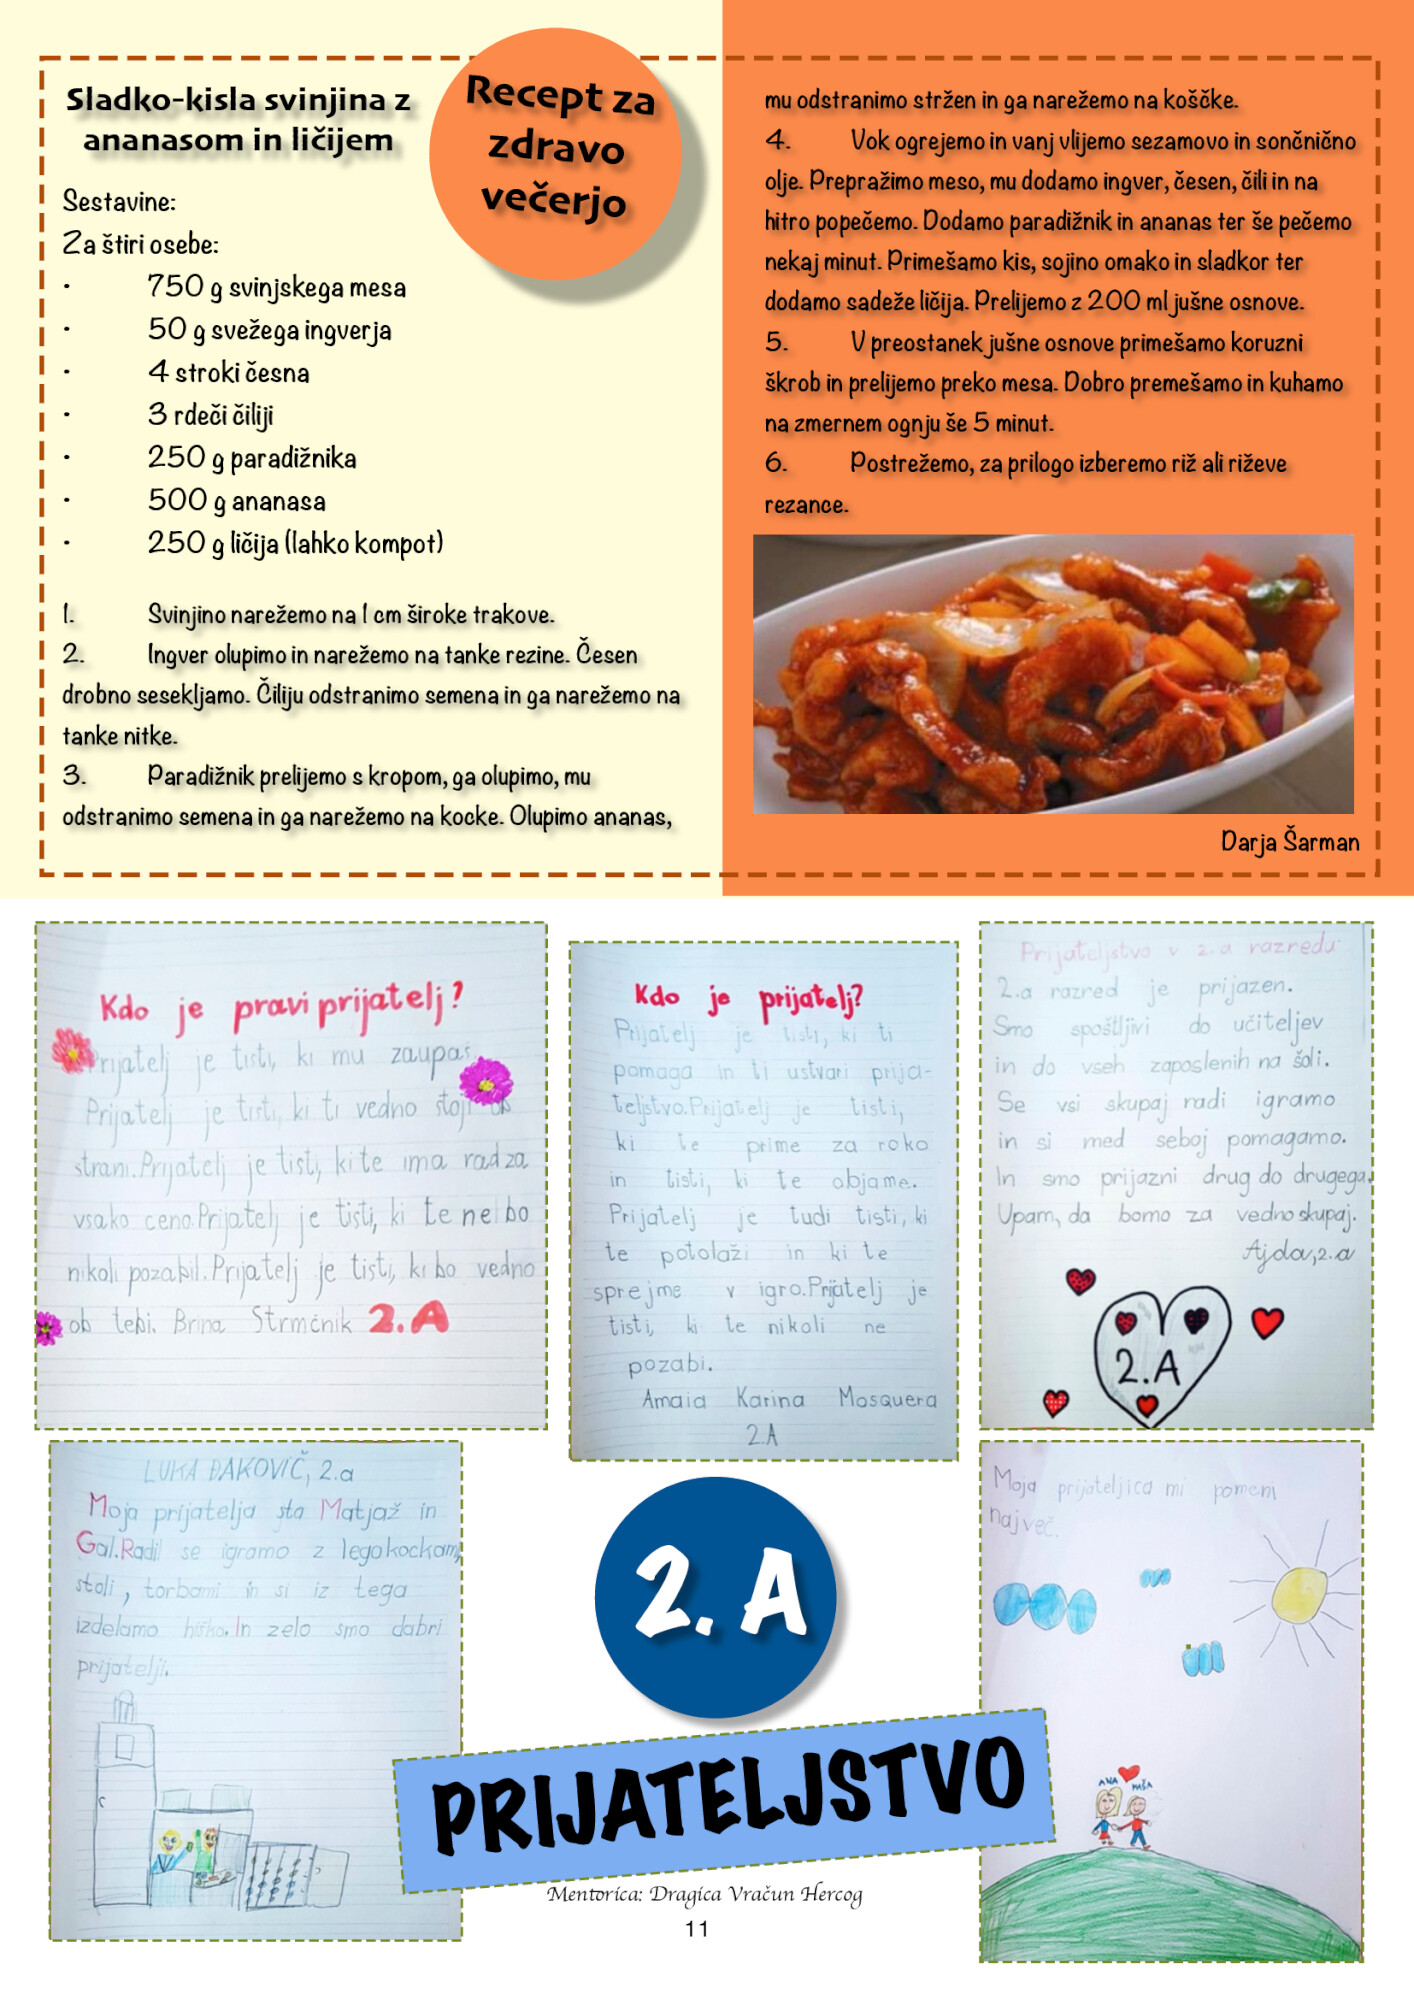 Sladko-kisla svinjina z
ananasom in ličijem
Recept za
zdravo
večerjo
Sestavine:
Za štiri osebe:
· 750 g svinjskega mesa
· 50 g svežega ingverja
· 4 stroki česna
· 3 rdeči čiliji
· 250 g paradižnika
· 500 g ananasa
· 250 g ličija (lahko kompot)
1. Svinjino narežemo na 1 cm široke trakove.
2. Ingver olupimo in narežemo na tanke rezine. Česen
drobno sesekljamo. Čiliju odstranimo semena in ga narežemo na
tanke nitke.
3. Paradižnik prelijemo s kropom, ga olupimo, mu
odstranimo semena in ga narežemo na kocke. Olupimo ananas,
mu odstranimo stržen in ga narežemo na koščke.
4. Vok ogrejemo in vanj vlijemo sezamovo in sončnično
olje. Prepražimo meso, mu dodamo ingver, česen, čili in na
hitro popečemo. Dodamo paradižnik in ananas ter še pečemo
nekaj minut. Primešamo kis, sojino omako in sladkor ter
dodamo sadeže ličija. Prelijemo z 200 ml jušne osnove.
5. V preostanek jušne osnove primešamo koruzni
škrob in prelijemo preko mesa. Dobro premešamo in kuhamo
na zmernem ognju še 5 minut.
6. Postrežemo, za prilogo izberemo riž ali riževe
rezance.
Darja Šarman
Kdo je pravi prijatelj?
Prijatelj je tisti, ki mu zaupaš.
Prijatelj je tisti, ki ti vedno stoji ob
strani. Prijatelj je tisti, ki te ima rad za
vsako ceno. Prijatelj je tisti, ki te ne bo
nikoli pozabil. Prijatelj je tisti, ki bo vedno
ob tebi. Brina Strmčnik 2.A
Kdo je prijatelj?
Prijatelj je tisti, ki ti
pomaga in ti ustvari prija-
teljstvo. Prijatelj je tisti,
ki te prime za roko
in tisti, ki te objame.
Prijatelj je tudi tisti, ki
te potolaži in ki te
sprejme v igro. Prijatelj je
tisti, ki te nikoli ne
pozabi.
Amaia Karina Mosquera
2.A
Prijateljstvo v 2.a razredu
2.a razred je prijazen.
Smo spoštljivi do učiteljev
in do vseh zaposlenih na šoli.
Se vsi skupaj radi igramo
in si med seboj pomagamo.
In smo prijazni drug do drugega.
Upam, da bomo za vedno skupaj.
Ajda, 2.a
2.A
LUKA ĐAKOVIČ, 2.a
Moja prijatelja sta Matjaž in
Gal. Radi se igramo z legokockami,
stoli, torbami in si iz tega
izdelamo hiško. In zelo smo dabri
prijatelji.
2. A
PRIJATELJSTVO
Moja prijateljica mi pomeni
največ.
ANA MAŠA
Mentorica: Dragica Vračun Hercog
11